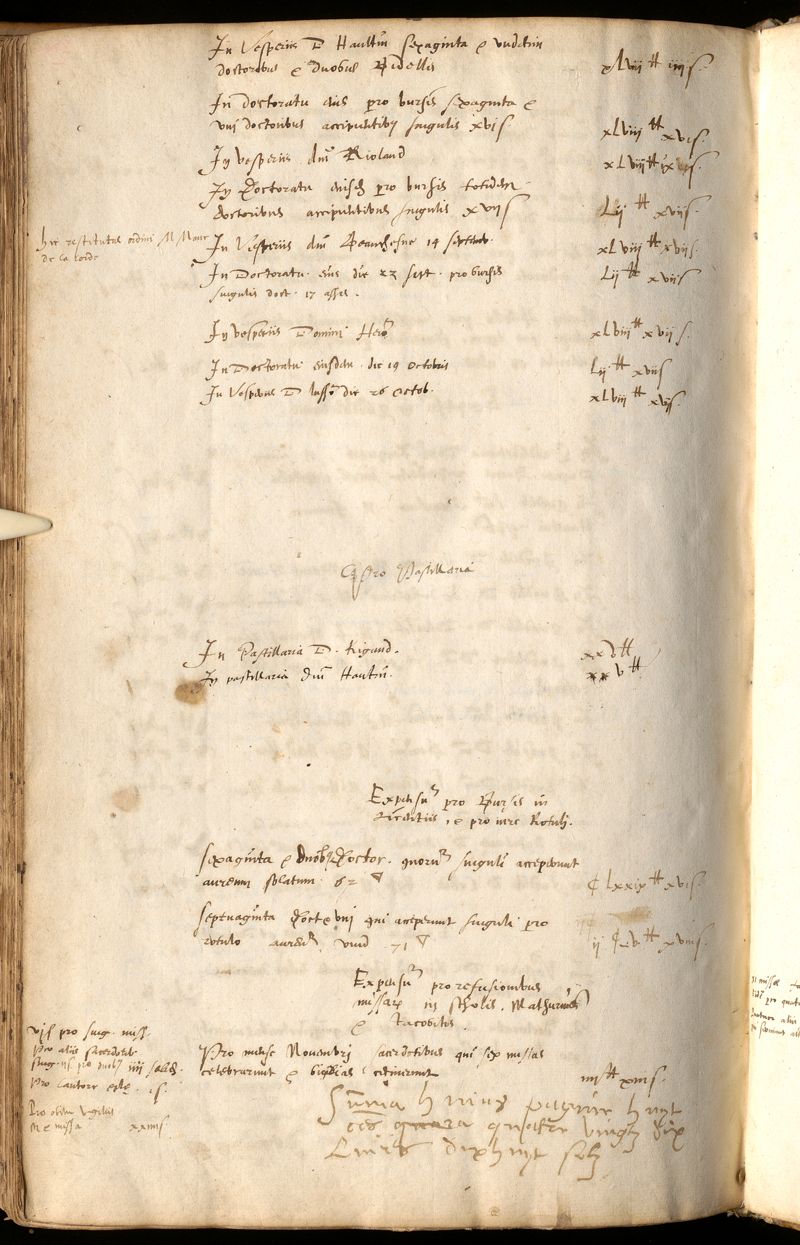 In Vesperiis D Hautin sexaginta & undecim
doctoribus & duobus Bidellis xlviij tt iiij s.
In doctoratu eius pro bursis sexaginta &
uni doctoribus accipientibus singulis xvi s xLviij tt xvi s.
In vesperiis dni Rioland xLviij tt
In Doctoratu eiusdem pro bursis totidem
doctoribus accipientibus singulis xvij s Lij tt xvij s.
hic restitutus ordini M
de la corde
In Vesperiis dni Beauchesne 14 septemb. xLviij tt xvij s.
In Doctoratu eius die 23 sept. pro bursis Lij tt xvij s
singulis doct. 17 asses.
In vesperiis Domini xLviij tt xvij s.
In Doctoratu eiusdem die 19 Octobris Lij tt xvij s
In Vesperiis D die 26 Octob. xLviij tt xvij s.
Pro Pastillaria
In Pastillaria D. Rigaud. xxv tt
In pastillaria dni Hautin. xxv tt
Expensum pro Bursis in
& pro iure Rotuli.
sexaginta & duobus Doctor. quorum singuli acceperunt
aureum solatum 62 C Lxxix tt xvi s.
septuaginta Doct & uni qui acceperunt singuli pro
rotulo aureum unum 71 ij C v tt xviij s.
Expensum pro refusionibus
missarum in scholis, Mathurinis
& Iacobitis.
vj s pro sing. miss.
Pro aliis sacerdotib
sing. iij s pro duobus iiij solid.
Pro Cantore j s.
Pro obitu vigiliis
& missa xxiiij s.
Pro mense Novembri sacerdotibus qui sex missas
celebrarunt & iiij tt xiiij s.
Summa huius paginae huyt
ces quatre vingtz dix
Livres dixhuyt solz